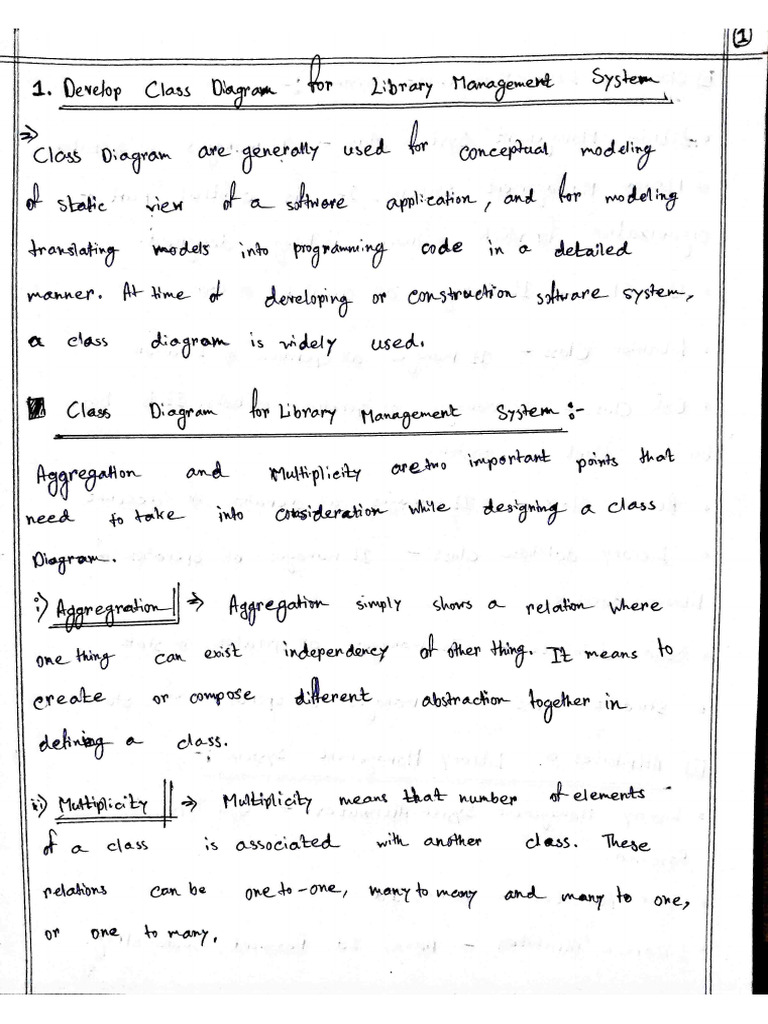 1
1. Develop Class Diagram for Library Management System
⇒ Class Diagram are generally used for conceptual modeling
of static view of a software application, and for modeling
translating models into programming code in a detailed
manner. At time of developing or construction software system,
a class diagram is widely used.
Class Diagram for Library Management System :-
Aggregation and Multiplicity are two important points that
need to take into consideration while designing a class
Diagram.
i) Aggregration ⇒ Aggregation simply shows a relation where
one thing can exist independency of other thing. It means to
create or compose different abstraction together in
defining a class.
ii) Multiplicity ⇒ Multiplicity means that number of elements
of a class is associated with another class. These
relations can be one to-one, many to many and many to one,
or one to many.